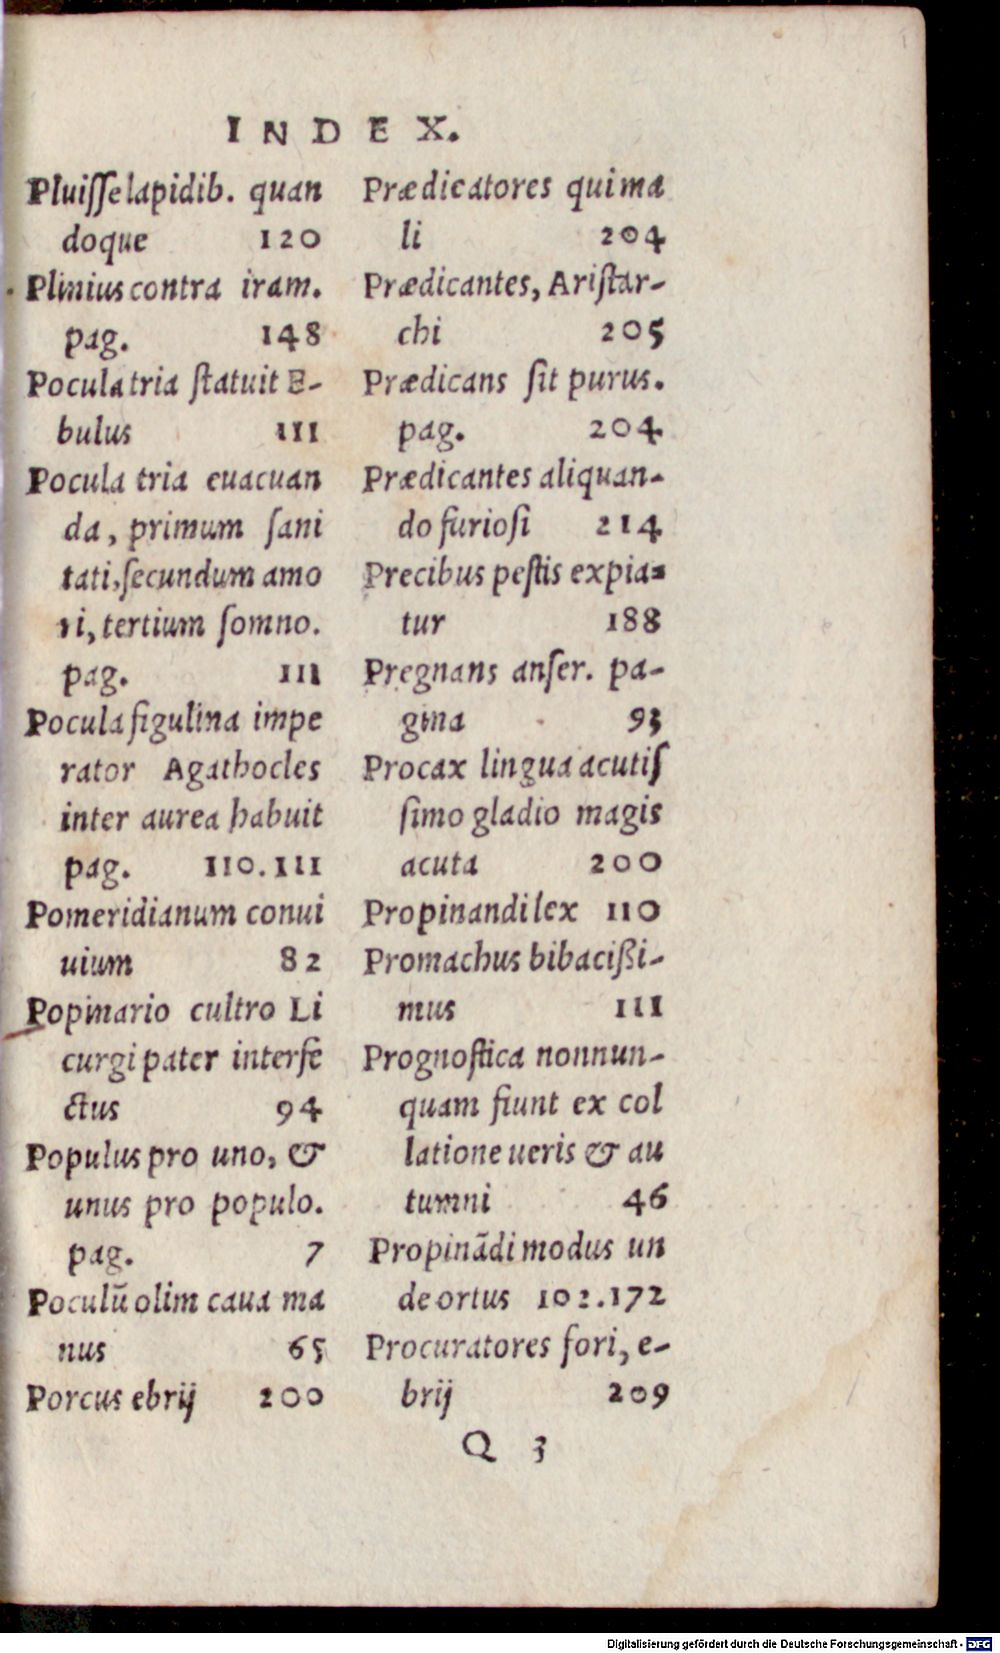 INDEX.
Pluiſſe lapidib. quan
doque 120
Plinius contra iram.
pag. 148
Pocula tria ſtatuit E-
bulus 111
Pocula tria euacuan
da, primum ſani
tati, ſecundum amo
ri, tertium ſomno.
pag. 111
Pocula figulina impe
rator Agathocles
inter aurea habuit
pag. 110.111
Pomeridianum conui
uium 82
Popinario cultro Li
curgi pater interfe
ctus 94
Populus pro uno, &
unus pro populo.
pag. 7
Poculū olim caua ma
nus 65
Porcus ebrij 200
Prædicatores qui ma
li 204
Prædicantes, Ariſtar-
chi 205
Prædicans ſit purus.
pag. 204
Prædicantes aliquan-
do furioſi 214
Precibus peſtis expia-
tur 188
Pregnans anſer. pa-
gina 93
Procax lingua acutiſ
ſimo gladio magis
acuta 200
Propinandi lex 110
Promachus bibacißi-
mus 111
Prognoſtica nonnun-
quam fiunt ex col
latione ueris & au
tumni 46
Propinādi modus un
de ortus 102.172
Procuratores fori, e-
brij 209
Q 3
Digitalisierung gefördert durch die Deutsche Forschungsgemeinschaft - DFG